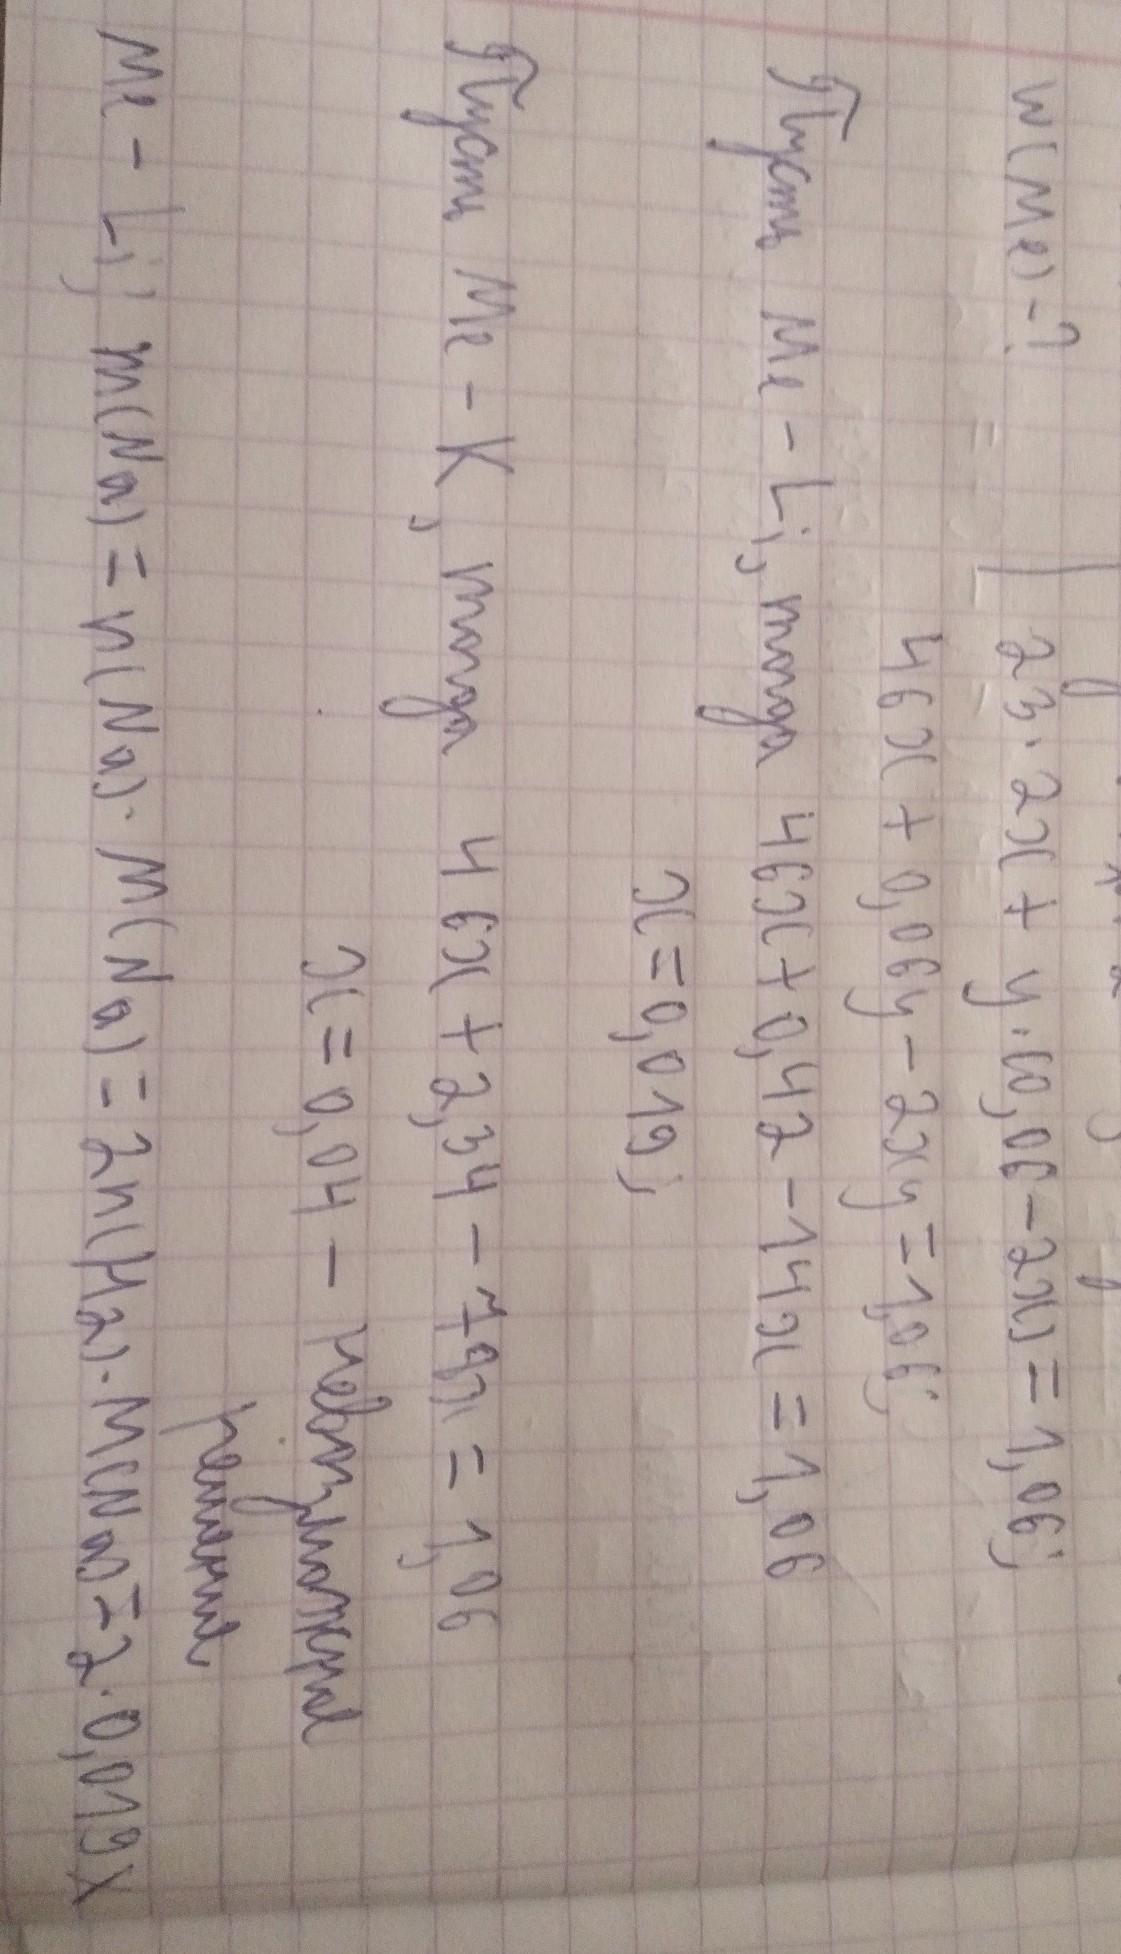 w(Me)-? 23·2x + y·(0,06-2x) = 1,06;
46x + 0,06y - 2xy = 1,06;
Пусть Me - Li, тогда 46x + 0,42 - 14x = 1,06
x = 0,019;
Пусть Me - K, тогда 46x + 2,34 - 78x = 1,06
x = 0,04 - невозможное
решение
Me - Li; m(Na) = n(Na)· M(Na) = 2n(H2)· M(Na) = 2·0,019x